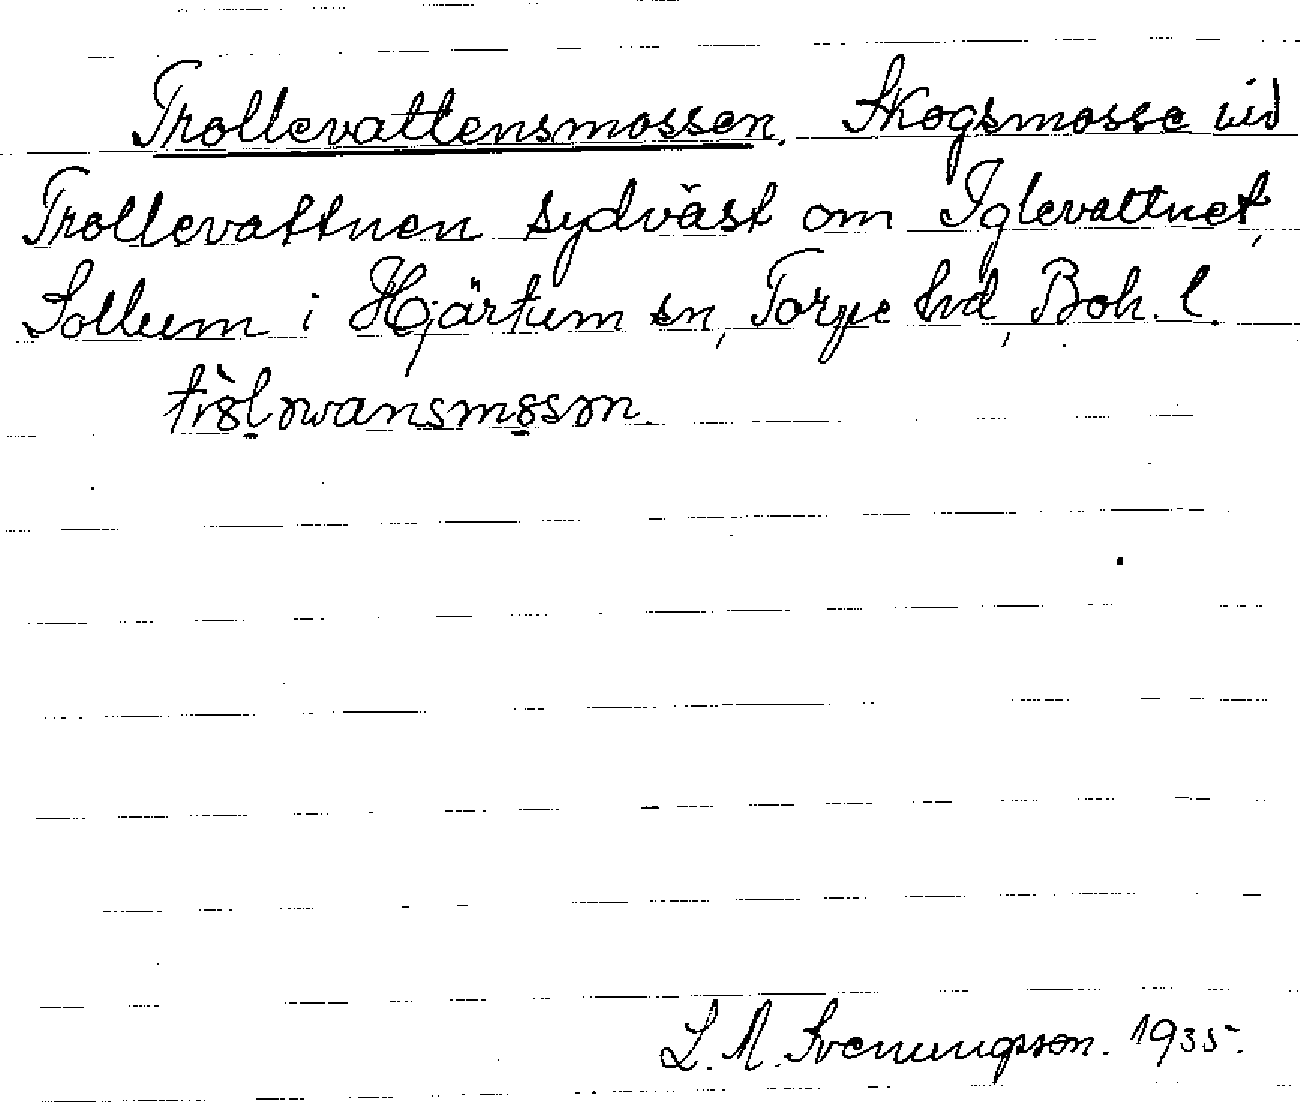 Trollevattensmossen. Skogsmosse vid
Trollevattnen sydväst om Iglevattnet,
Sollum i Hjärtum sn, Torpe hd, Boh. l.
L. M. Svenungsson. 1935.